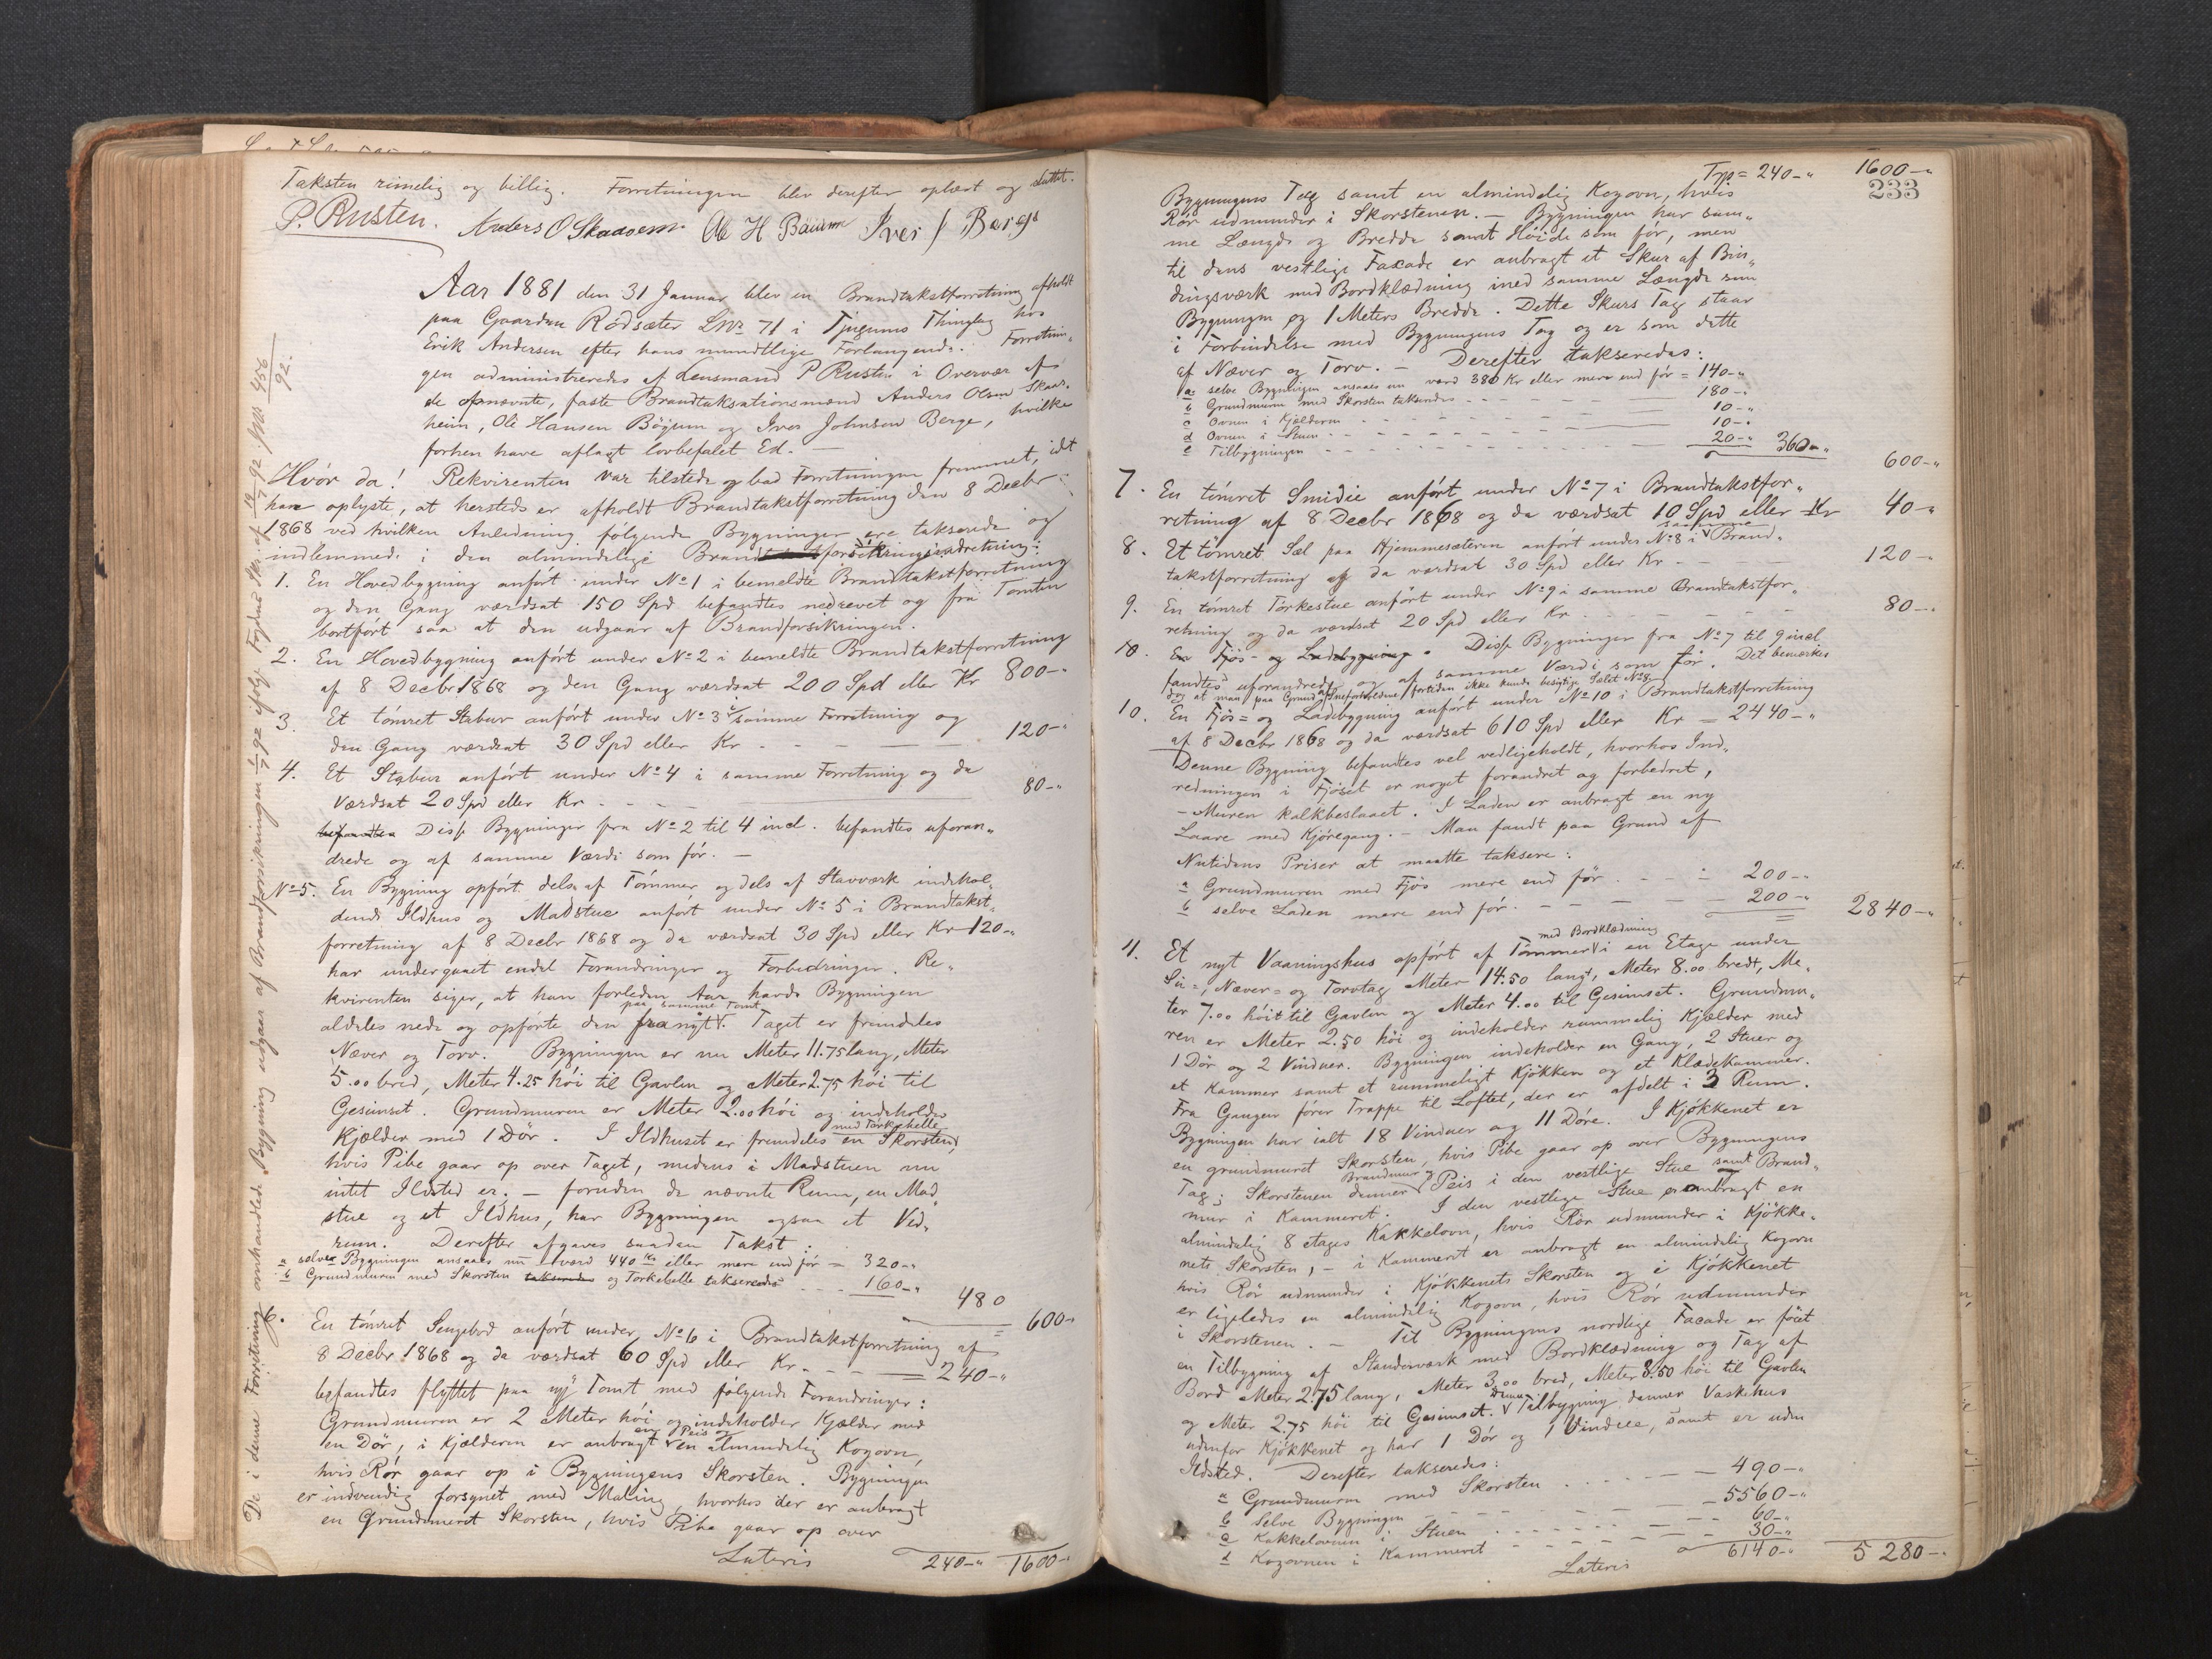 Taksten rimelig og billig. Forretningen blev derefter oplæst og sluttet.
P. Rusten. Anders O Skaasem. Ole H Bøium Iver J Berge
Aar 1881 den 31 Januar blev en Brandtakstforretning afholdt
paa Gaarden Rödsæter Lnr 71 i Tjugums Thinglag hos
Erik Andersen efter hans mundtlige Forlangende. Forretnin-
gen administreredes af Lensmand P Rusten i Overvær af
de opnævnte, faste Brandtaksationsmænd Anders Olsen Skaas-
heim, Ole Hansen Böÿum og Iver Johnsen Berge, hvilke
forhen have aflagt lovbefalet Ed. —
Hvór da! Rekvirenten var tilstede og bad Forretningen fremmet, idet
han oplyste, at hersteds er afholdt Brandtakstforretning den 8 Decbr
1868 ved hvilken Anledning fólgende Bygninger ere takserede og
indlemmede i den almindelige Brandforsikringsindretning:
1. En Hovedbygning anfórt under No 1 i bemeldte Brandtakstforretning
og den Gang værdsat 150 Spd befandtes nedrevet og fra Tomten
bortfórt saa at den udgaar af Brandforsikringen.
2. En Hovedbygning anfórt under No 2 i bemeldte Brandtakstforretning
af 8 Decbr 1868 og den Gang værdsat 200 Spd eller Kr 800-"
3. Et tómret Stabur anfórt under No 3 i samme Forretning og
den Gang værdsat 30 Spd eller Kr - - - 120-"
4. Et Stabur anfórt under No 4 i samme Forretning og da
Værdsat 20 Spd eller Kr. - - - 80-"
befandtes Disse Bygninger fra No 2 til 4 incl. befandtes uforan-
drede og af samme Værdi som fór. —
No 5. En Bygning opfórt dels af Tómmer og dels af Stavværk indehol-
dende Ildhus og Madstue anfórt under No 5 i Brandtakst-
forretning af 8 Decbr 1868 og da værdsat 30 Spd eller Kr 120-"
har undergaaet endel Forandringer og Forbedringer. Re-
kvirenten siger, at han forleden Aar havde Bygningen
paa samme Tomt
aldeles nede og opförte den fra nÿt V. Taget er fremdeles
Næver og Torv. Bygningen er nu Meter 11.75 lang, Meter
5.00 bred, Meter 4.25 hói til Gavlen og Meter 2.75 hói til
Gesimset. Grundmuren er Meter 2.00 hói og indeholder
med Tørkehelle
Kjælder med 1 Dór. I Ildhuset er fremdeles en Skorsten,
hvis Pibe gaar op over Taget, medens i Madstuen nu
intet Ildsted er. — foruden de nævnte Rum, en Mad-
stue og et Ildhus, har Bygningen ogsaa et Ved-
rum. Derefter afgaves saadan Takst:
a selve Bygningen ansaaes nu værd 440 Kr eller mere end fór = 320-"
b Grundmuren med Skorsten taksered og Tørkehelle takseredes - - - 160-"
480
600-"
6. En tómret Sengebod anfórt under No 6 i Brandtakstforretning af
8 Decbr 1868 og da værdsat 60 Spd eller Kr. - - = 240-"
befandtes flyttet paa nÿ Tomt med fólgende Forandringer:
Grundmuren er 2 Meter hói og indeholder Kjælder med
en Peis og
en Dór, i Kjælderen er anbragt V en almindelig Kogovn,
hvis Rór gaar op i Bygningens Skorsten. Bygningen
er indvendig forsynet med Maling, hvorhos der er anbragt
en Grundmuret Skorsten, hvis Pibe gaar op over
Lateris 240-" 1600-"
De i denne Forretning omhandlede Bygning udgaar af Brandforsikringen 1/7 92 ifølge Fogdens Skr. af 19/7 92 Jno. 456/92.
Trp = 240-" 1600-"
233
Bygningens Tag samt en almindelig Kogovn, hvis
Rór udmunder i Skorstenen. — Bygningen har sam-
me Længde og Bredde samt Hóide som fór, men
til dens vestlige Facade er anbragt et Skur af Bin-
dingsværk med Bordklædning med samme Længde som
Bygningen og 1 Meters Bredde. Dette Skurs Tag staar
i Forbindelse med Bygningens Tag og er som dette
af Næver og Torv. — Derefter takseredes:
a selve Bygningen ansaaes nu værd 380 Kr eller mere end fór = 140-"
b Grundmuren med Skorsten takseredes - - - 180-"
c Ovnen i Kjælderen - - - 10-"
d Ovnen i Stuen - - - 10-"
e Tilbygningen - - - 20-" 360-"
600-"
7. En tómret Smidie anfórt under No 7 i Brandtakstfor-
retning af 8 Decbr 1868 og da værdsat 10 Spd eller Kr 40-"
samme
8. Et tömret Sæl paa Hjemmesæteren anfórt under No 8 i V Brand-
takstforretning og da værdsat 30 Spd eller Kr - - - 120-"
9. En tómret Tórkestue anfórt under No 9 i samme Brandtakstfor-
retning og da værdsat 20 Spd eller Kr. - - - 80-"
10. En Fjós- og Ladebygning. Disse Bygninger fra No 7 til 9 incl.
fandtes uforandrede og af samme Værdi som fór. Det bemærkes
dog at man paa Grund af Sneforholdene fortiden ikke kunde besigtige Sælet No 8.
10. En Fjós= og Ladebygning anfórt under No 10 i Brandtakstforretning
af 8 Decbr 1868 og da værdsat 610 Spd eller Kr = 2440-"
Denne Bygning befandtes vel vedligeholdt, hvorhos Ind-
redningen i Fjóset er noget forandret og forbedret,
- Muren kalkbeslaaet. I Laden er anbragt en ny
Laave med Kjóregang. — Man fandt paa Grund af
Nutidens Priser at maatte taksere:
a Grundmuren med Fjós mere end fór. - - - 200-"
b selve Laden mere end fór. - - - 200-" 2840-"
med Bordklædning
11. Et nyt Vaaningshus opfórt af Tömmer V i en Etage under
Su=, Næver= og Torvtag Meter 14.50 langt, Meter 8.00 bredt, Me-
ter 7.00 hóit til Gavlen og Meter 4.00 til Gesimset. Grundmu-
ren er Meter 2.50 hói og indeholder rummelig Kjælder med
1 Dór og 2 Vinduer. Bygningen indeholder en Gang, 2 Stuer og
et Kammer samt et rummeligt Kjókken og et Klædekammer.
Fra Gangen fórer Trappe til Loftet, der er afdelt i 3 Rum.
Bygningen har ialt 18 Vinduer og 11 Dóre. I Kjókkenet er
en grundmuret Skorsten, hvis Pibe gaar op over Bygningens
Brandmur og
Tag; Skorstenen danner V Peis i den vestlige Stue samt Brand-
mur i Kammeret. I den vestlige Stue er anbragt en
almindelig 8 etages Kakkelovn, hvis Rór udmunder i Kjókke-
nets Skorsten, - i Kammeret er anbragt en almindelig Kogovn
hvis Rór udmunder i Kjókkenets Skorsten og i Kjókkenet
er ligeledes en almindelig Kogovn, hvis Rór udmunder
i Skorstenen. — Til Bygningens nordlige Facade er fóiet
en Tilbygning af Standerværk med Bordklædning og Tag af
Bord Meter 2.75 lang, Meter 3.00 bred, Meter 3.50 hói til Gavlen
Denne
og Meter 2.75 hói til Gesimset. V Tilbygning danner Vaskehus
udenfor Kjókkenet og har 1 Dór og 1 Vindue, samt er uden
Ildsted. Derefter takseredes:
a Grundmuren med Skorsten - - - 490-"
b Selve Bygningen - - - 5560-"
c Kakkelovnen i Stuen - - - 60-"
d Kogovnen i Kammeret - - - 30-"
Lateris 6140-" 5280-"